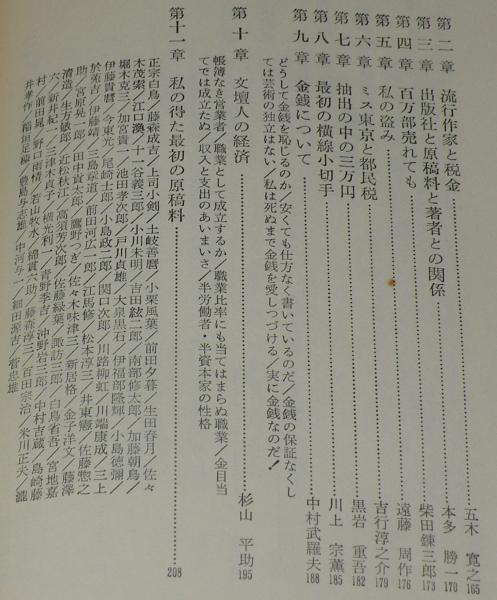 第二章 流行作家と税金 五木 寛之 165
第三章 出版社と原稿料と著者との関係 本多 勝一 170
第四章 百万部売れても 柴田錬三郎 173
第五章 私の盗み 遠藤 周作 176
第六章 ミス東京と都民税 吉行淳之介 179
第七章 抽出の中の三万円 黒岩 重吾 182
第八章 最初の横線小切手 川上 宗薫 185
第九章 金銭について 中村武羅夫 188
どうして金銭を恥じるのか/安くても仕方なく書いているのだ/金銭の保証なくし
ては芸術の独立はない/私は死ぬまで金銭を愛しつづける/実に金銭なのだ!
第十章 文壇人の経済 杉山 平助 195
帳簿なき営業者/職業として成立するか/職業比率にも当てはまらぬ職業/金目当
てでは成立たぬ/収入と支出のあいまいさ/半労働者・半資本家の性格
第十一章 私の得た最初の原稿料 208
正宗白鳥/藤森成吉/上司小剣/土岐善麿/小栗風葉/前田夕暮/生田春月/佐々
木茂索/江口渙/十一谷義三郎/小川未明/吉田絃二郎/南部修太郎/加藤朝鳥/
堀木克三/加宮貴一/池田孝次郎/戸川貞雄/大泉黒石/伊福部隆輝/小島徳彌/
伊藤貴麿/今東光/尾崎士郎/小島政二郎/関口次郎/川路柳虹/川端康成/三上
於菟吉/伊藤靖/三島章道/前田河広一郎/江馬修/松本淳三/井東憲/佐藤惣之
助/宮原晃一郎/田中貢太郎/鷹野つぎ/佐々木味津三/新居格/金子洋文/藤澤
清造/生方敏郎/近松秋江/高須芳次郎/佐藤緑葉/諏訪三郎/白鳥省吾/宮地嘉
六/新井紀一/三津木貞子/横光利一/青野季吉/沖野岩三郎/中村吉蔵/島崎藤
村/前田晃/野口雨情/若山牧水/綿貫六助/藤森淳三/百田宗治/米川正夫/瀧
井孝作/稲垣足穂/豊島与志雄/中河与一/細田源吉/菅忠雄